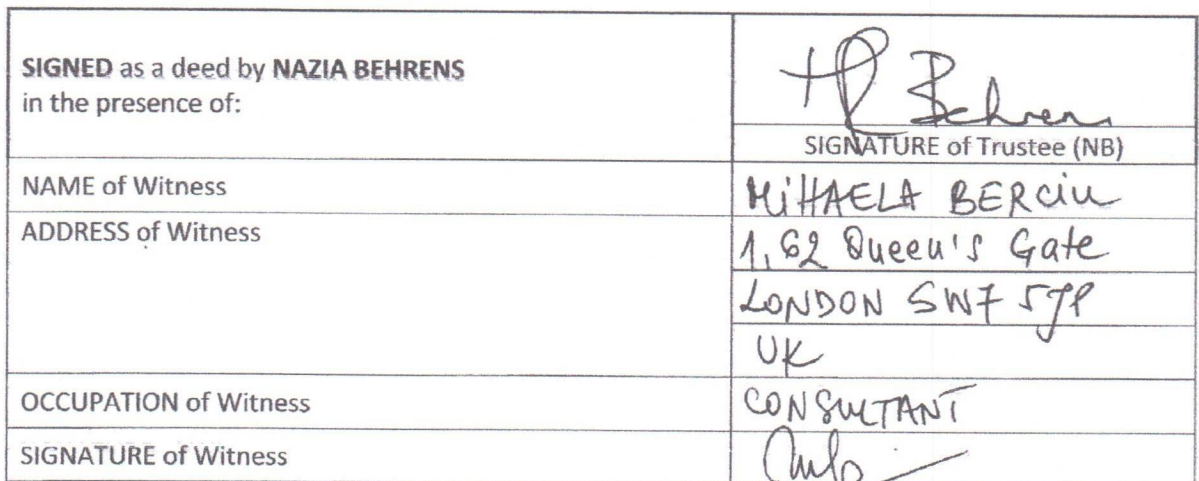 SIGNED as a deed by NAZIA BEHRENS
in the presence of:
Behrens
SIGNATURE of Trustee (NB)
NAME of Witness
MiHAELA BERCiu
ADDRESS of Witness
1, 62 Queen's Gate
LONDON SW7 5JP
UK
OCCUPATION of Witness
CONSULTANT
SIGNATURE of Witness